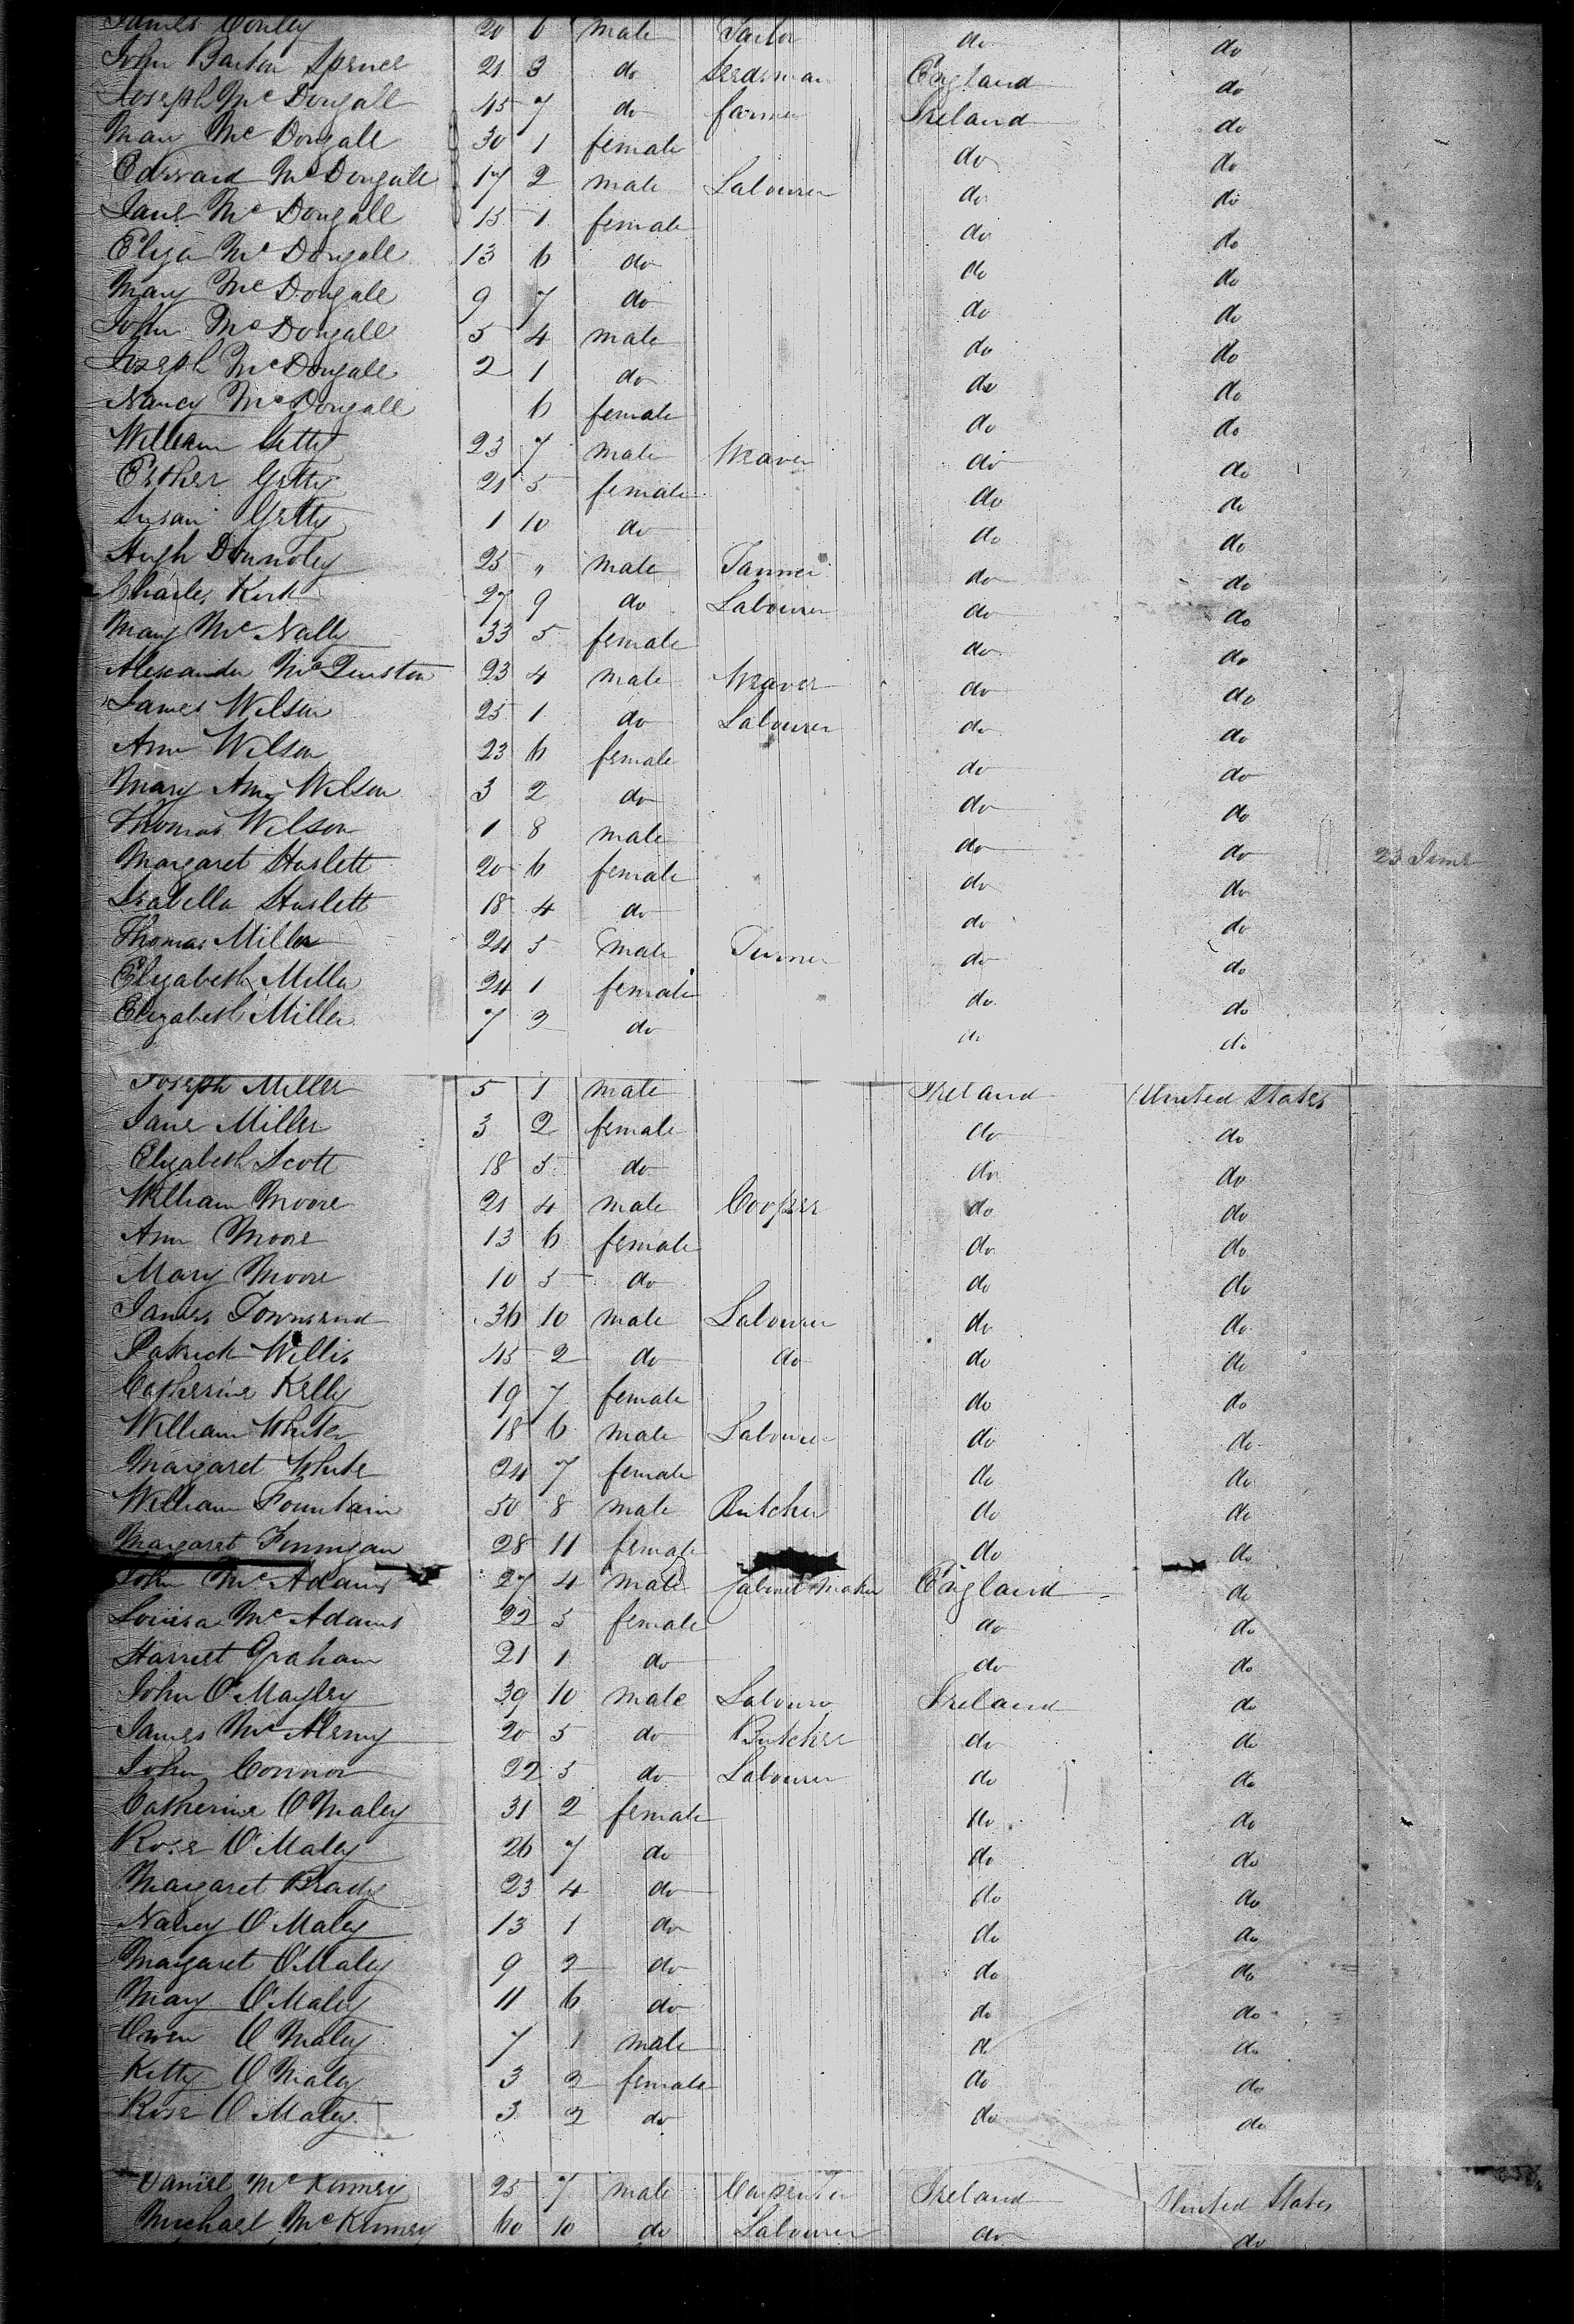 James Conley 20 6 male Tailor do do
John Barton Spencer 21 3 do Seedsman England do
Joseph McDougall 45 7 do farmer Ireland do
Mary McDougall 30 1 female do do
Edward McDougall 17 2 male Labourer do do
Jane McDougall 15 1 female do do
Eliza McDougall 13 6 do do do
Mary McDougall 9 7 do do do
John McDougall 5 4 male do do
Joseph McDougall 2 1 do do do
Nancy McDougall 6 female do do
William Getty 23 7 male Weaver do do
Esther Getty 21 5 female do do
Susan Getty 1 10 do do do
Hugh Donnoley 25 " male Tanner do do
Charles Kirk 27 9 do Labourer do do
Mary McNally 33 5 female do do
Alexander McQuiston 23 4 male Weaver do do
James Wilson 25 1 do Labourer do do
Ann Wilson 23 6 female do do
Mary Ann Wilson 3 2 do do do
Thomas Wilson 1 8 male do do
Margaret Haslett 20 6 female do do 23 June
Isabella Haslett 18 4 do do do
Thomas Miller 24 5 male Turner do do
Elizabeth Miller 24 1 female do do
Elizabeth Miller 7 2 do do do
Joseph Miller 5 1 male Ireland United States
Jane Miller 3 2 female do do
Elizabeth Scott 18 5 do do do
William Moore 21 4 male Cooper do do
Ann Moore 13 6 female do do
Mary Moore 10 5 do do do
James Townsend 36 10 male Labourer do do
Patrick Willis 45 2 do do do do
Catherine Kelly 19 7 female do do
William White 18 6 male Labourer do do
Margaret White 24 7 female do do
William Fountain 50 8 male Butcher do do
Margaret Finnigan 28 11 female do do
John McAdams 27 4 male Cabinet Maker England do
Louisa McAdams 22 5 female do do
Harriet Graham 21 1 do do do
John O'Mayley 39 10 male Labourer Ireland do
James 20 5 do Butcher do do
John Connor 22 5 do Labourer do do
Catherine O'Maley 31 2 female do do
Rose O'Maley 26 7 do do do
Margaret Brady 23 4 do do do
Nancy O'Maley 13 1 do do do
Margaret O'Maley 9 2 do do do
Mary O'Maley 11 6 do do do
Owen O'Maley 7 1 male do do
Kitty O'Maley 3 2 female do do
Rose O'Maley 3 2 do do do
Daniel McKinney 25 7 male Carpenter Ireland United States
Michael McKinney 60 10 do Labourer do do